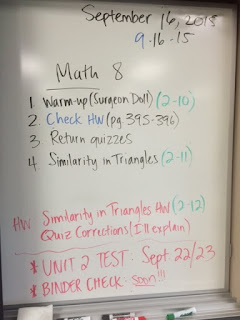 September 16, 2015
9-16-15
Math 8
1. Warm-up (Surgeon Doll) (2-10)
2. Check HW (pg 395-396)
3. Return quizzes
4. Similarity in Triangles (2-11)
HW Similarity in Triangles HW (2-12)
Quiz Corrections (I'll explain)
* UNIT 2 TEST: Sept. 22/23
* BINDER CHECK: soon!!!